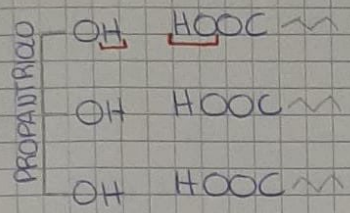 PROPANTRIOLO
OH HOOC
OH HOOC
OH HOOC